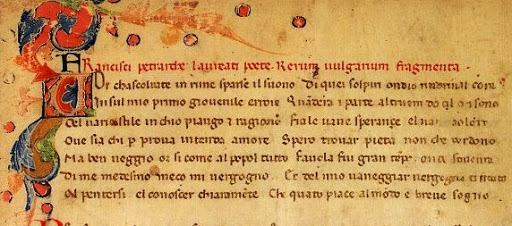 Francisci petrarche laureati poete. Rerum vulgarium fragmenta.
chascoltate in rime sparse il suono Di quei sospiri ondio
In sul mio primo giovenile errore Quandera i parte altruom sono
Del vario stile in chio piango et ragiono Fra le vane speranze el van dolore
Ove sia chi p prova intenda amore Spero trovar pieta non che perdono
Ma ben veggio or si come al popol tutto Favola fui gran tepo onde sovente
Di me medesmo meco mi vergogno Et del mio vaneggiar vergogna
El pentersi el conoscer chiaramete Che quato piace al modo e breve sogno